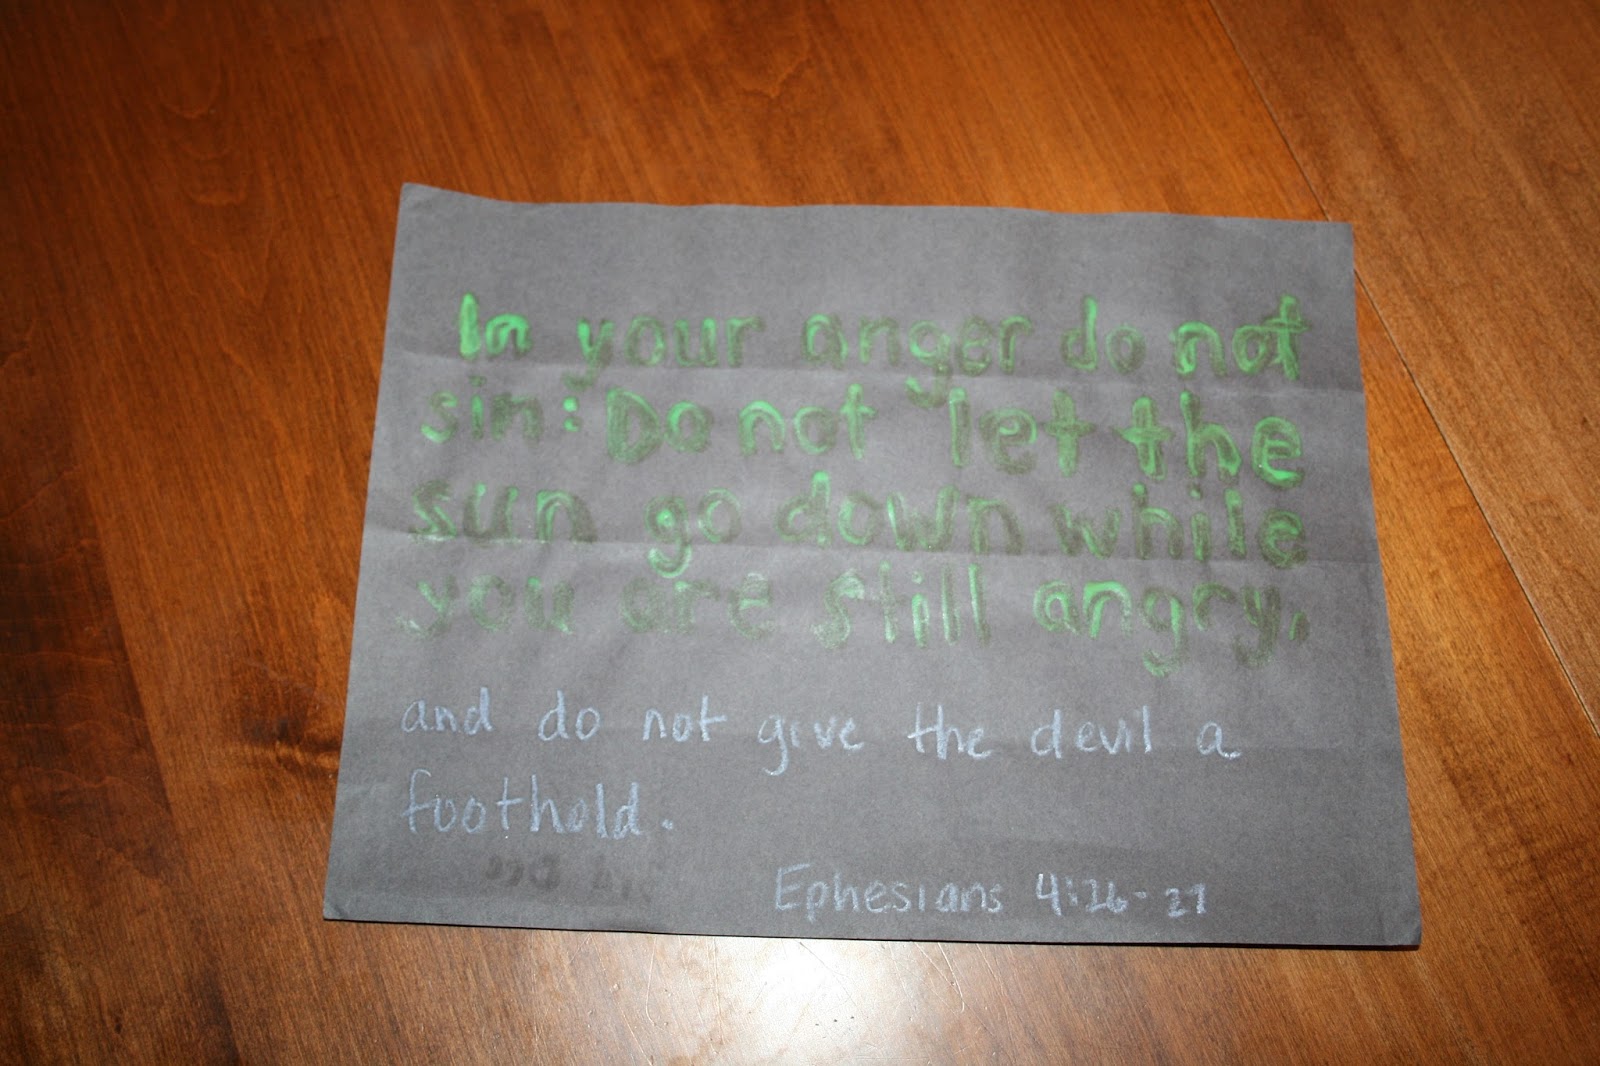 In your anger do not
sin: Do not let the
sun go down while
you are still angry,
and do not give the devil a
foothold.
Ephesians 4:26-27